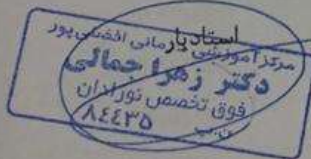 استادیار
مرکز آموزشی درمانی افضلی پور
دکتر زهرا جمالی
فوق تخصص نوزادان
ن.پ ۸٤٤۳۵